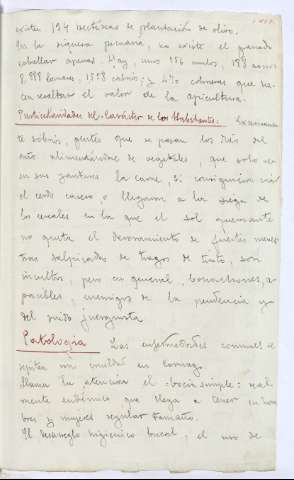 existen 194 hectáreas de plantación de olivo.
En la riqueza pecuaria, no existe el ganado
caballar apenas. Hay, unos 156 mulos, 188 asnos
8.888 lanares, 1.558 cabríos; y 470 colmenas que ha-
cen resaltar el valor de la apicultura.
Particularidades del Carácter de los Habitantes.
te sobrios, gentes que se pasan los días del
año alimentándose de vegetales, que solo ven
en sus pantanos la carne, si consiguieron criar
el cerdo casero o llegaron a la siega de
los cereales en la que el sol quemante
no quita el devoramiento de fuertes
tras salpicadas de tragos de tinto, son
incultos, pero en general, bonachones, a-
pacibles, enemigos de la pendencia y
del ruido juerguista.
Patología Las enfermedades comunes se
repiten con crueldad en Cornago.
Llama la atención el bocio simple: real-
mente endémico que llega a tener en hom-
bres y mujeres regular tamaño.
El desarreglo higiénico bucal, el uso de